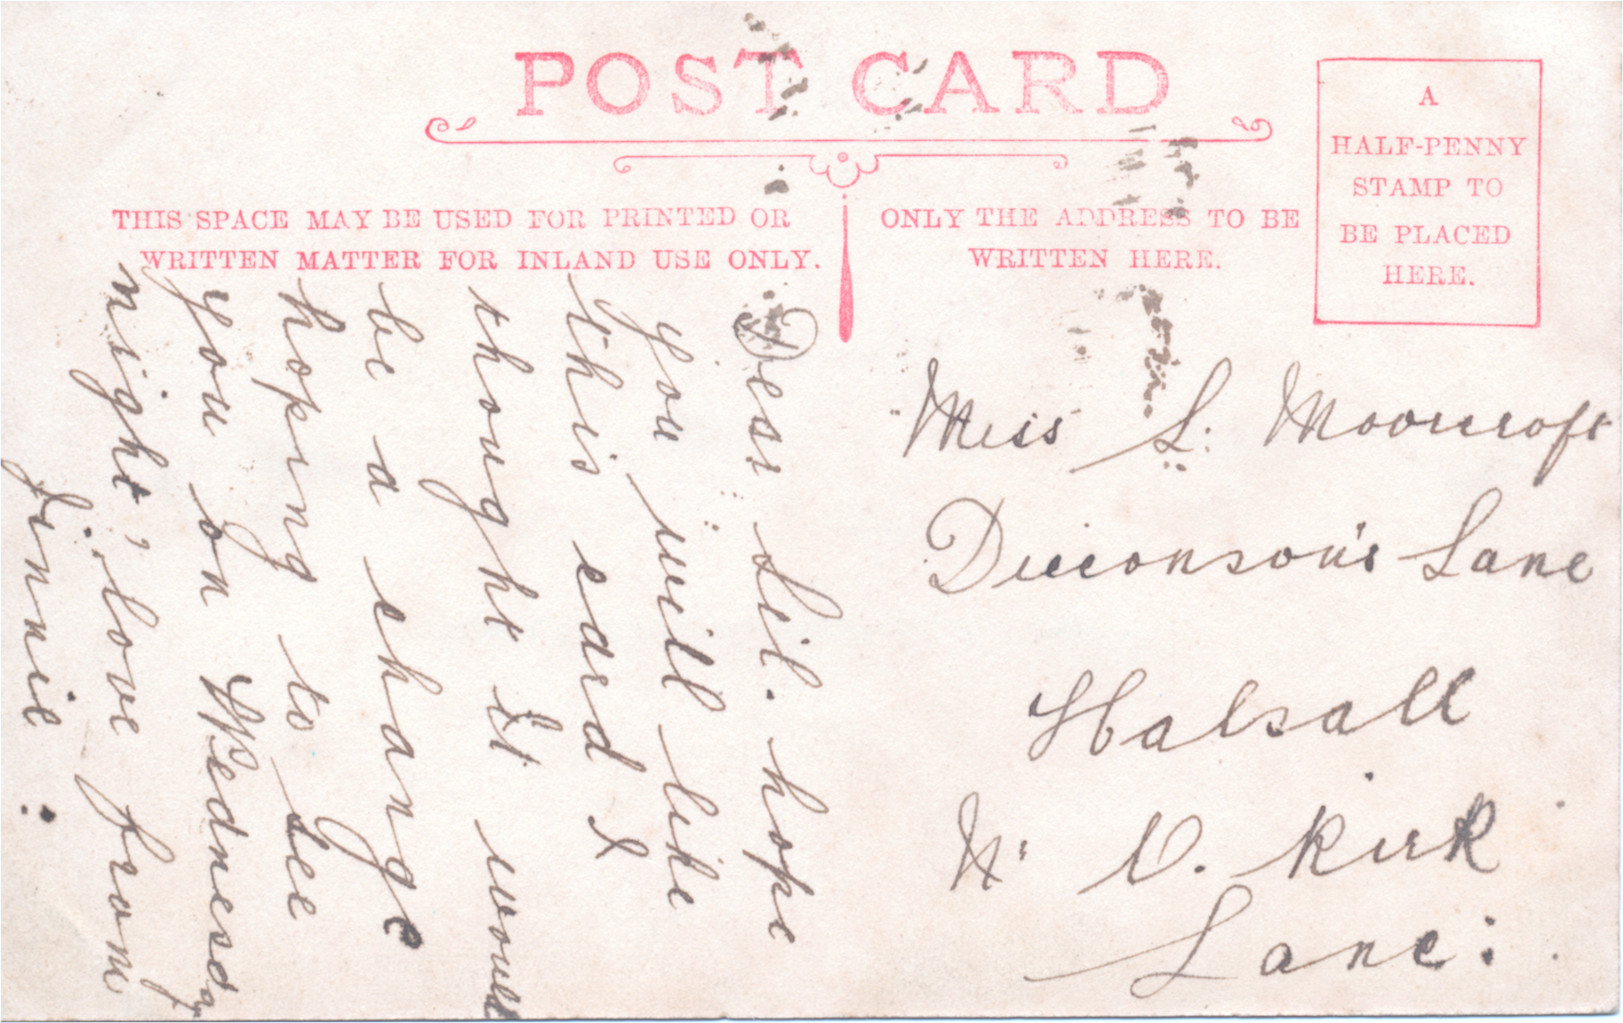 POST CARD
THIS SPACE MAY BE USED FOR PRINTED OR
WRITTEN MATTER FOR INLAND USE ONLY.
ONLY THE ADDRESS TO BE
WRITTEN HERE.
A
HALF-PENNY
STAMP TO
BE PLACED
HERE.
Dear Lil. hope
you will like
this card I
thought it would
be a change
hoping to see
you on Wednesday
night, love from
Jinnie
Miss L. Moorcroft
Dicconson's Lane
Halsall
Nr O. Kirk
Lanc: